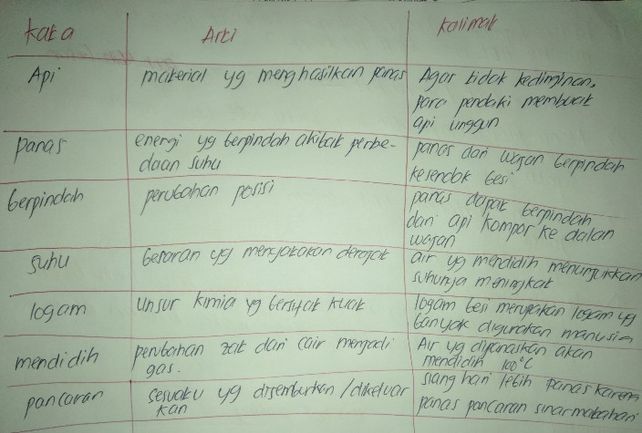 kata
Arti
Kalimat
Api
material yg menghasilkan panas
Agar tidak kedinginan,
para pendaki membuat
api unggun
panas
energi yg berpindah akibat perbe-
daan suhu
panas dari wajan berpindah
kesendok besi
berpindah
perubahan posisi
panas dapat berpindah
dari api kompor ke dalan
wajan
suhu
besaran yg menyatakan derajat
air yg mendidih menunjukkan
suhunya meningkat
logam
unsur kimia yg bersifat kuat
logam besi merupakan logam yg
banyak digunakan manusia
mendidih
perubahan zat dari cair menjadi
gas.
Air yg dipanaskan akan
mendidih 100°C
pancaran
sesuatu yg disemburkan/dikeluar
kan
siang hari lebih panas karena
panas pancaran sinar matahari